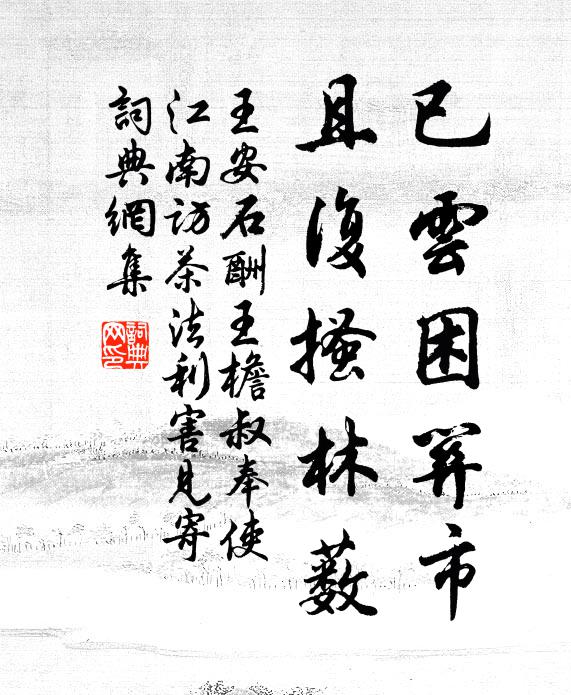 已雲困關市
且復搔林藪
王安石酬王檐叔奉使
江南訪茶法利害見寄
詞典網集
詞典网印